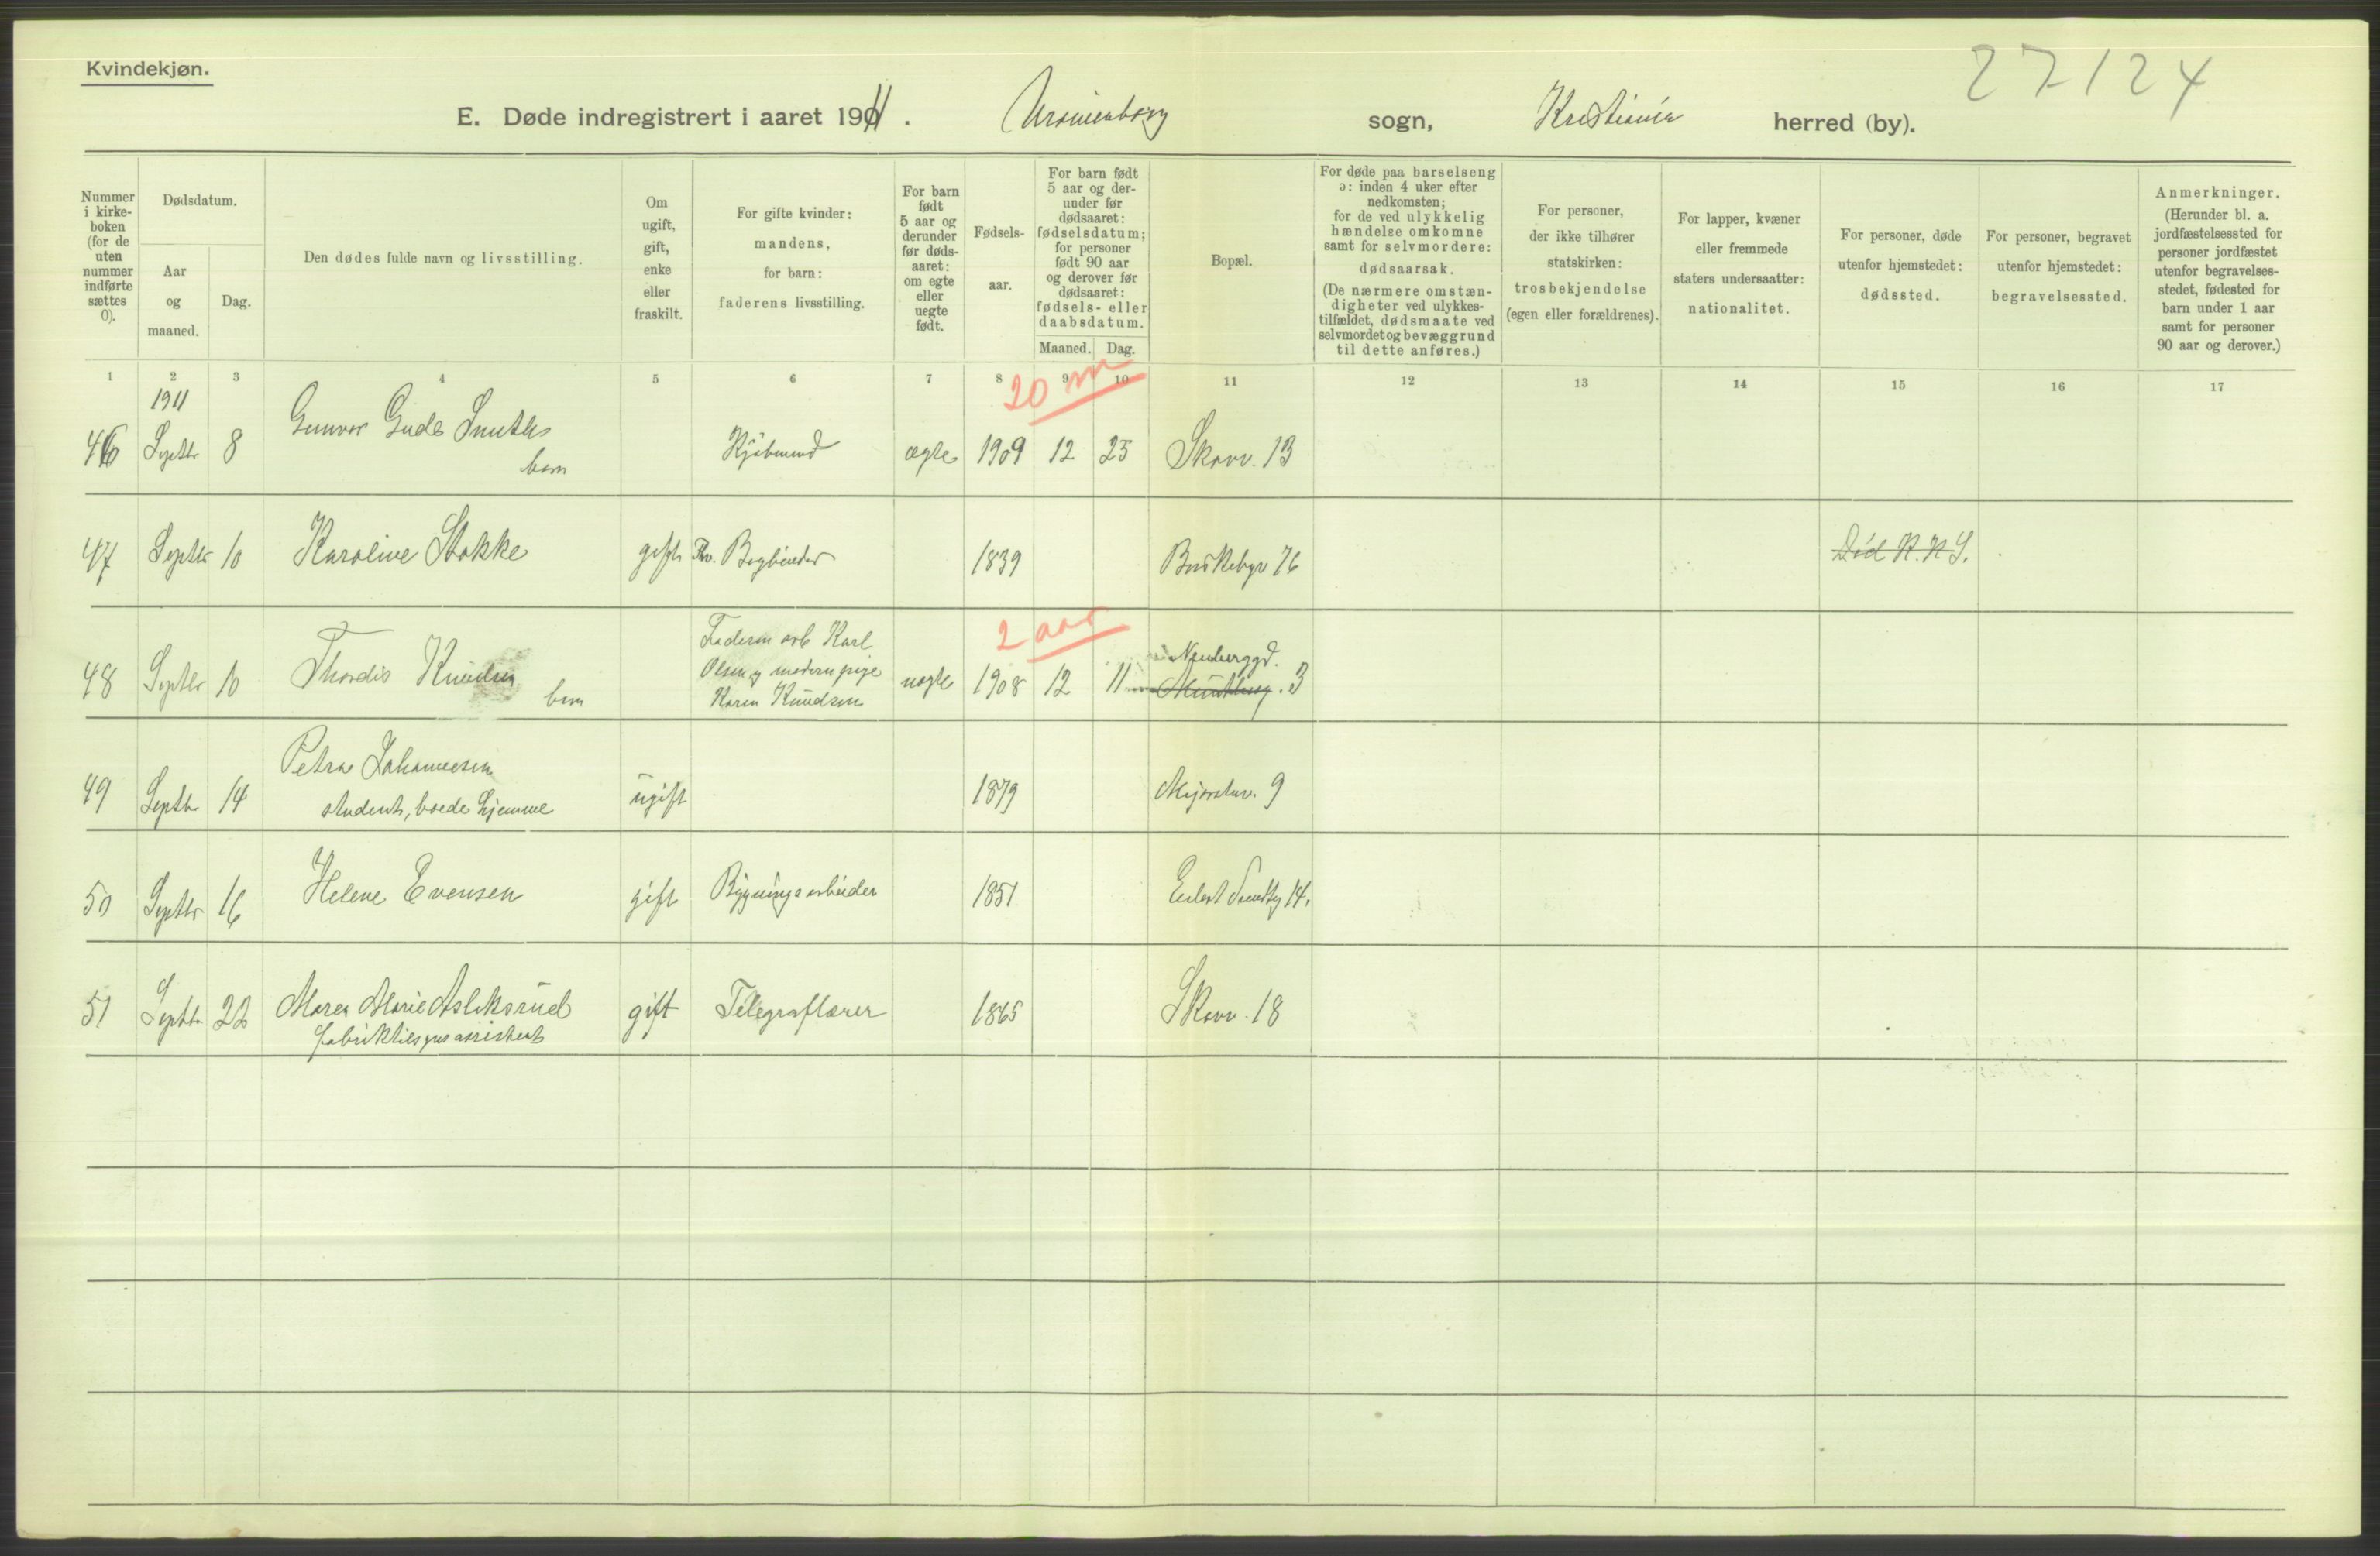 Kvindekjøn.
27124
E. Døde indregistrert i aaret 1911. Uranienborg sogn, Kristiania herred (by).
Nummer i kirke-boken (for de uten nummer indførte sættes 0).
Dødsdatum.
Aar og maaned.
Dag.
Den dødes fulde navn og livsstilling.
Om ugift, gift, enke eller fraskilt.
For gifte kvinder: mandens, for barn: faderens livsstilling.
For barn født 5 aar og derunder før døds-aaret: om egte eller uegte født.
Fødsels-aar.
For barn født 5 aar og der-under før dødsaaret: fødselsdatum; for personer født 90 aar og derover før dødsaaret: fødsels- eller daabsdatum.
Maaned. Dag.
Bopæl.
For døde paa barselseng ɔ: inden 4 uker efter nedkomsten; for de ved ulykkelig hændelse omkomne samt for selvmordere: dødsaarsak. (De nærmere omstæn-digheter ved ulykkes-tilfældet, dødsmaate ved selvmordet og bevæggrund til dette anføres.)
For personer, der ikke tilhører statskirken: trosbekjendelse (egen eller forældrenes).
For lapper, kvæner eller fremmede staters undersaatter: nationalitet.
For personer, døde utenfor hjemstedet: dødssted.
For personer, begravet utenfor hjemstedet: begravelsessted.
Anmerkninger. (Herunder bl. a. jordfæstelsessted for personer jordfæstet utenfor begravelses-stedet, fødested for barn under 1 aar samt for personer 90 aar og derover.)
1 2 3 4 5 6 7 8 9 10 11 12 13 14 15 16 17
1911
20 m
46 Septbr 8 Gunvor Gude Smiths
barn Kjøbmand ægte 1909 12 25 Skovv. 13
47 Septbr 10 Karoline Stokke gift Fhv. Bogbinder 1839 Briskebyv 76 Død R. H S.
2 aar
48 Septbr 10 Thordis Knudsen
barn Faderen arb Karl
Olsen og moderen pige
Karen Knudsen uægte 1908 12 11 Neuberggd. 3
49 Septbr 14 Petra Johannesen
student, boede hjemme ugift 1879 Majorstuv. 9
50 Septbr 16 Helene Evensen gift Bygningsarbeider 1851 Eilert Sundtsg 14.
51 Septbr 22 Maren Marie Asleksrud
fabriktilsynsassistent gift Telegraflærer 1865 Skovv. 18